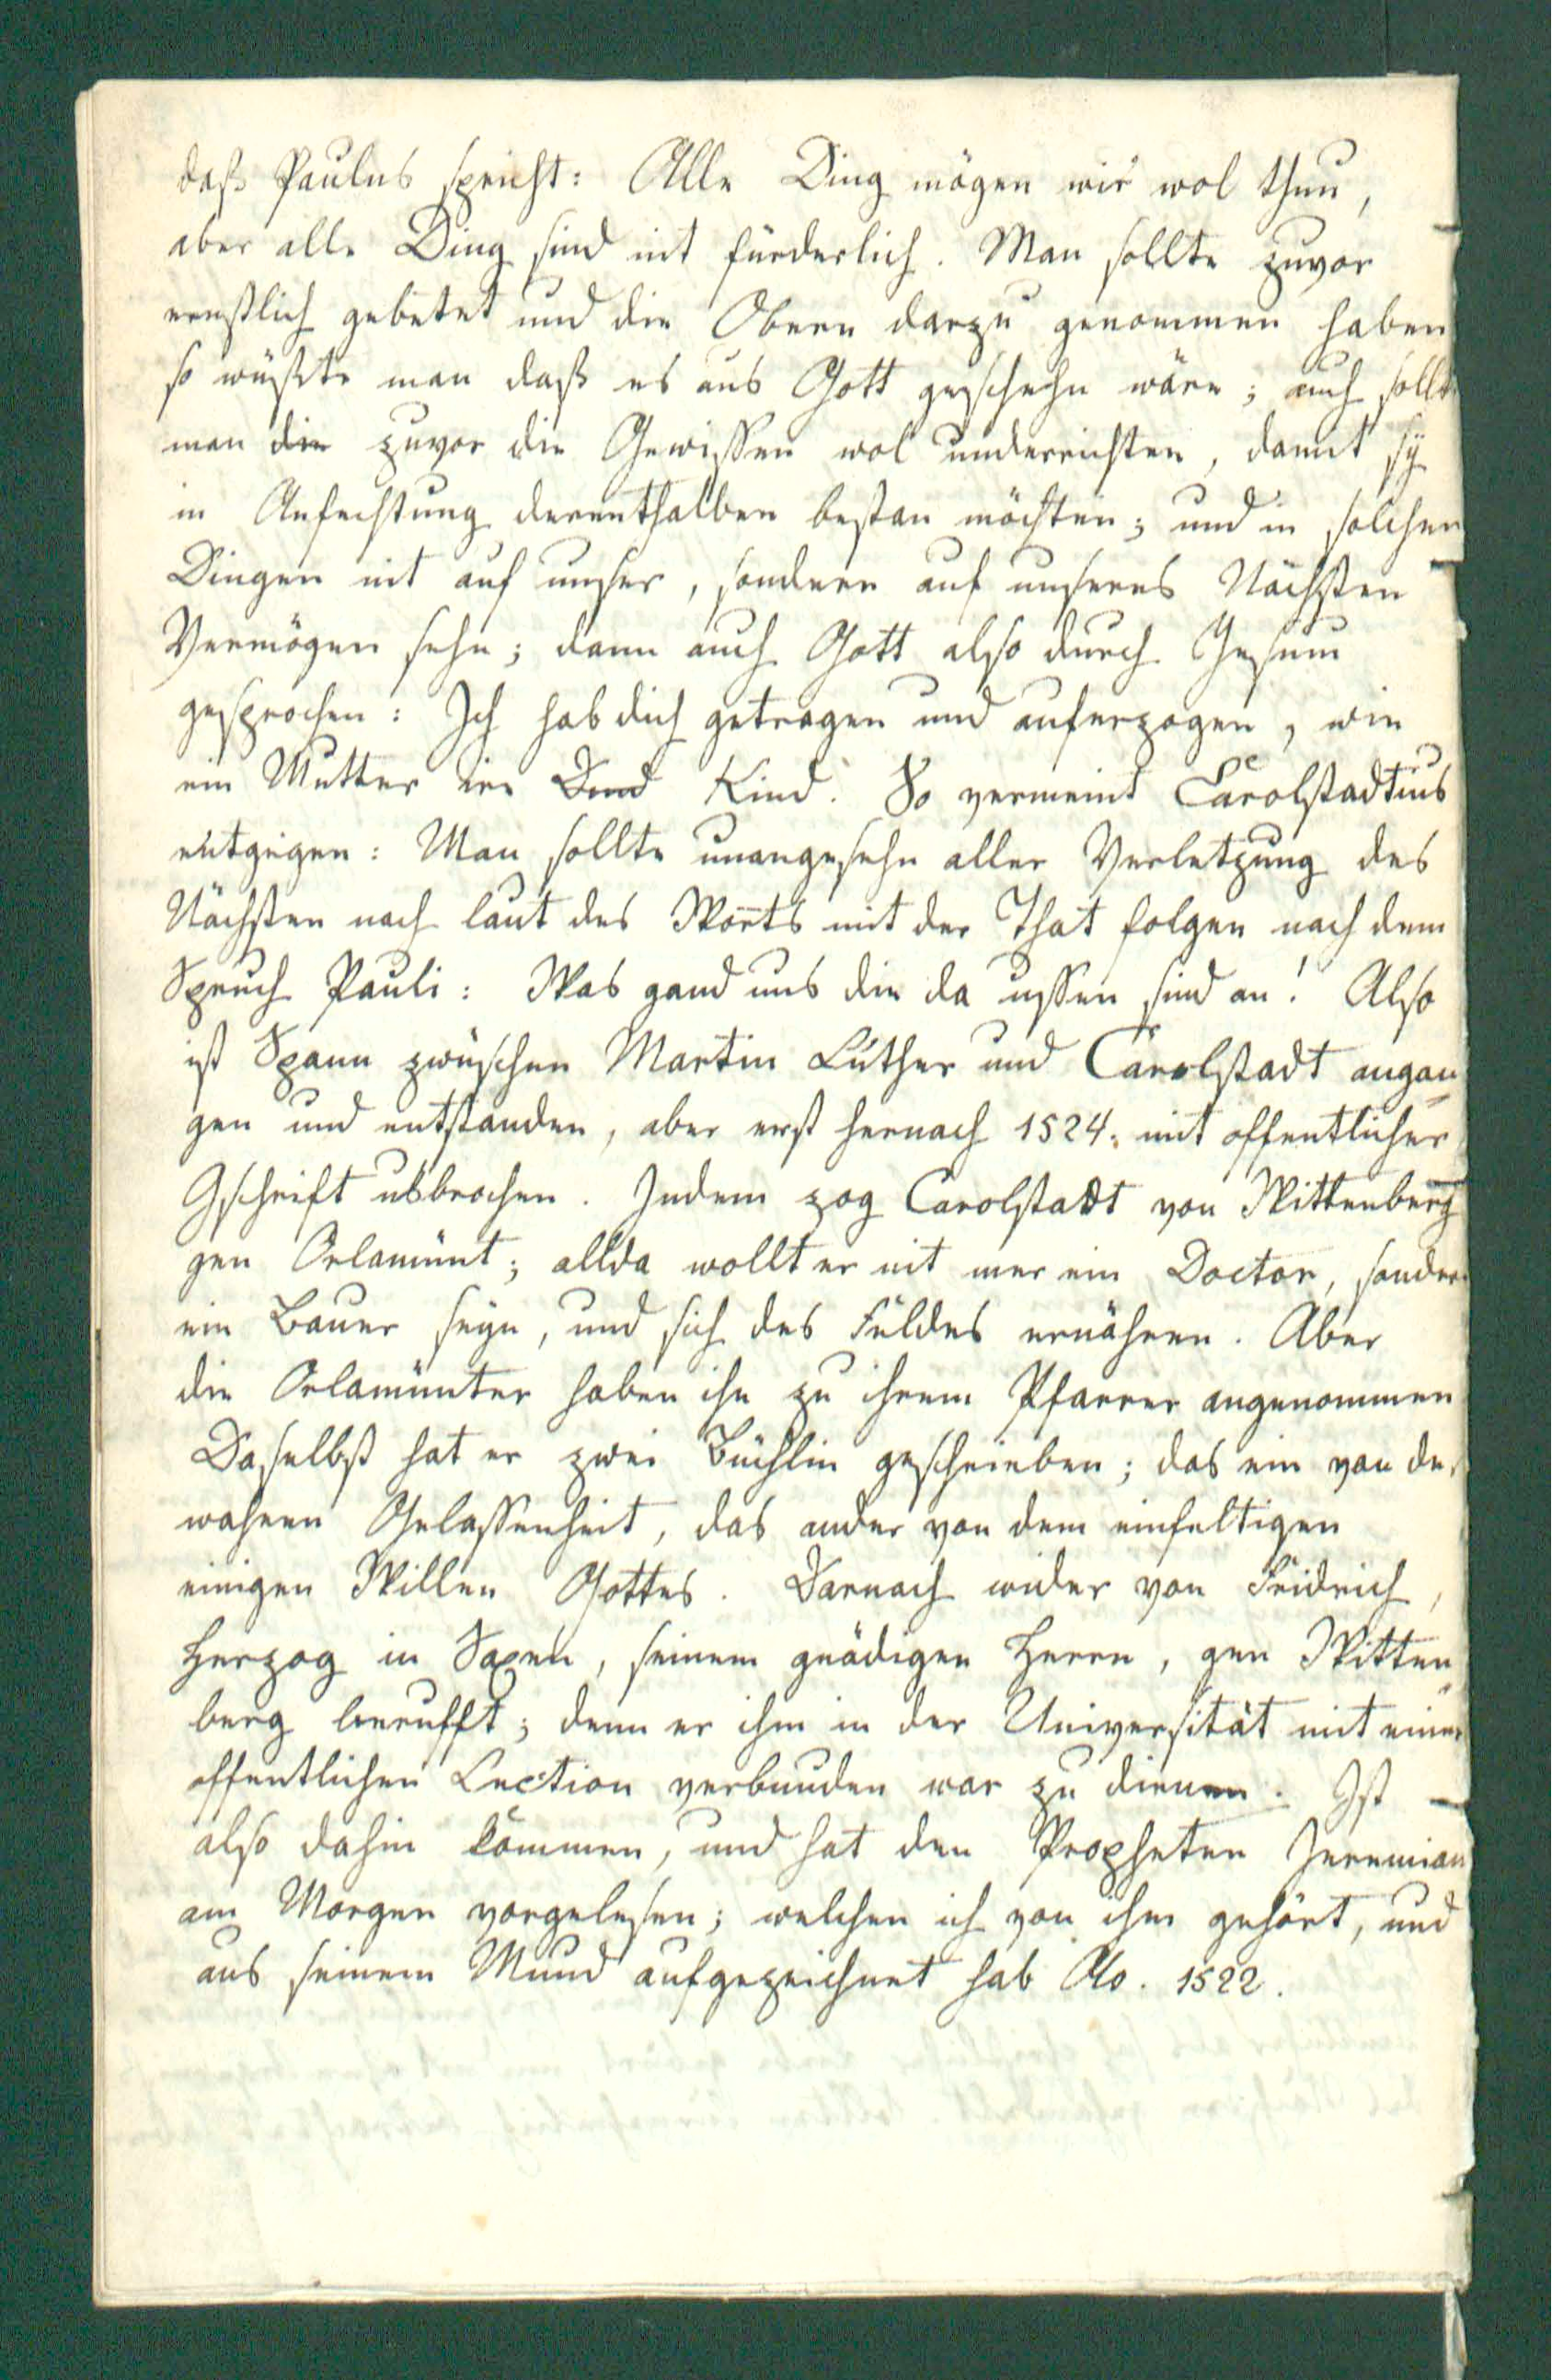 daß Paulus spricht: Alle Ding mögen wir wol thun,
aber alle Ding sind nit fürderlich. Man sollte zuvor
ernstlich gebetet und die Obern darzu genommen haben
so wüßte man daß es aus Gott geschehn wäre; auch sollt
man die zuvor die Gewissen wol underrichten, damit sÿ
in Anfechtung derenthalben bestan möchten; und in solchen
Dingen nit auf unser, sondern auf unseres Nächsten
Vermögen sehn; dann auch Gott also durch Jesum
gesprochen: Ich hab dich getragen und auferzogen, wie
ein Mutter ire Kind. So vermeint Carolstadtius
entgegen: Man sollte unangesehn aller Verletzung des
Nächsten nach laut des Worts mit der That folgen nach dem
Spruch Pauli: Was gand uns die da ussen sind an! Also
ist Spann zwüschen Martin Luther und Carolstadt angan=
gen und entstanden, aber erst hernach 1524. mit offentlicher
Gschrift usbrochen. Indem zog Carolstadt von Wittenberg
gen Orlamünt; allda wollt er nit mer ein Doctor, sonder
ein Bauer seÿn, und sich des Feldes ernähren. Aber
die Orlamünter haben ihn zu ihrem Pfarrer angenommen
Daselbst hat er zwei Büchlin geschrieben; das ein von der
wahren Gelassenheit, das ander von dem einfeltigen
einigen Willen Gottes. Darnach wider von Fridrich,
Herzog in Saxen, seinem gnädigen Herrn, gen Witten=
berg berufft; denn er ihm in der Universität mit einer
offentlichen Lection verbunden war zu dienen. Ist
also dahin kommen, und hat den Propheten Jeremian
am Morgen vorgelesen; welchen ich von ihm gehört, und
aus seinem Mund aufgezeichnet hab Ao. 1522.